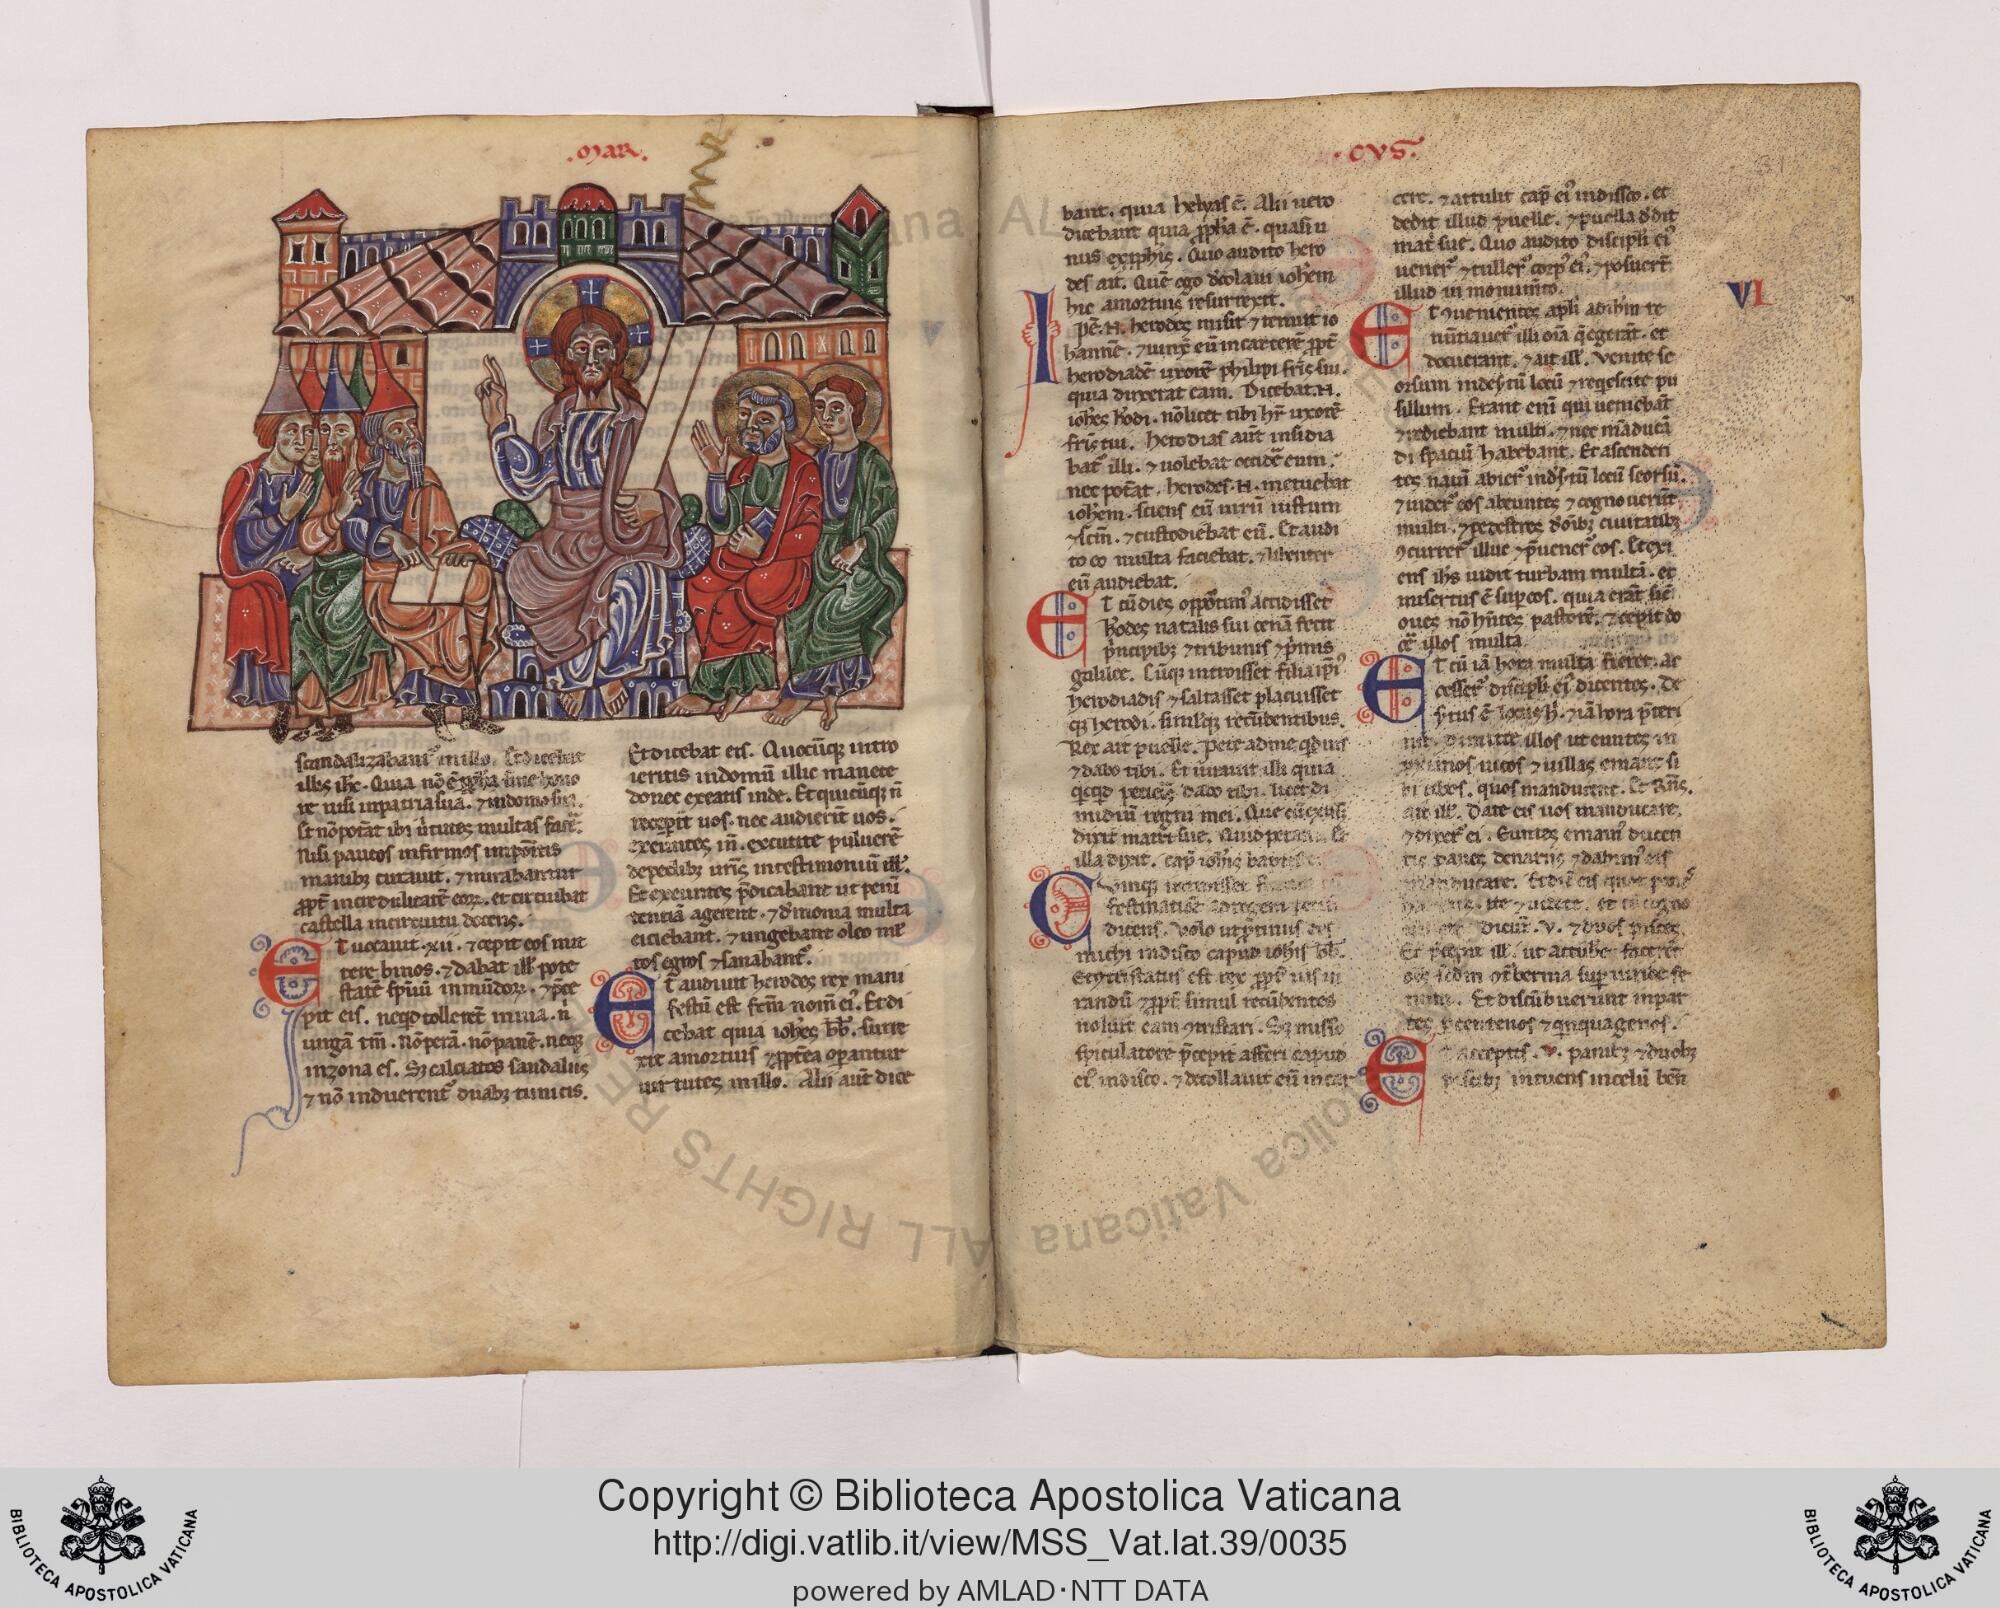 .MAR.
scandalizabant̄ in illo. Et dicebat
illis ihc̄. Quia nō ē ꝓpha sine hono
re nisi in patria sua. ⁊ in domo sua.
Et nō pot̄at ibi v̄tutes multas facē.
Nisi paucos infirmos inpoſitis
manibꝫ curauit. ⁊ mirabantur
ꝓpt̄ incredulitatē eoꝝ. et circuibat
castella in circuitu docens.
Et uocauit .xii. ⁊ cepit eos mit
tere binos. ⁊ dabat ill' pote
statē spirituū inmūdoꝝ. ⁊ p̄ce
pit eis. neqͥd tollerēt in uia. n̄
uirgā tm̄. nō perā. nō panē. neqꝫ
in zona es. Sꝫ calciatos sandaliis
⁊ nō induerent' duabꝫ tunicis.
Et dicebat eis. Quocūqꝫ intro
ieritis in domū illic manete
donec exeatis inde. Et quicūqꝫ n̄
recep̄it uos. nec audierīt uos.
exeuntes in̄. excutite puluerē
de pedibꝫ ur̄is in testimoniū ill'.
Et exeuntes p̄dicabant ut peni
tentiā agerent. ⁊ demonia multa
eiciebant. ⁊ ungebant oleo ml'
tos egros ⁊ sanabant'.
Et audiuit herodes rex mani
festū est eīm nom̄ ei'. Et di
cebat quia ioh̄es bb̄. surre
xit a mortuis ⁊ ꝓpt̄ea op̄antur
uirtutes in illo. Alii aut̄ dice
.CVS.
bant. quia helyas ē. Alii uero
dicebant quia ꝓpha ē. quasi u
nus ex ꝓphis. Quo audito hero
des ait. Quē ego decolaui ioh̄em
hic a mortuis resurrexit.
Ipē .N. herodes misit ⁊ tenuit io
hannē. ⁊ uinx̄ eū in carcerē ꝓpt̄
herodiadē uxorē philipi fr̄is sui.
quia duxerat eam. Dicebat .N.
ioh̄es h'odi. nō licet tibi hr̄e uxorē
fr̄is tui. herodias aut̄ insidia
bat' illi. ⁊ uolebat occidē eum.
nec pot̄at. herodes .N. metuebat
ioh̄em. sciens eū uirū iustum
⁊ sc̄m. ⁊ custodiebat eū. Et audi
to eo multa faciebat. ⁊ libenter
eū audiebat.
Et cū dies opp̄otun' accidisset
h'odes natalis sui cenā fecit
p̄ncipibꝫ ⁊ tribunis ⁊ p̄mis
galilee. Cūqꝫ introisset filia ipi'
herodiadis ⁊ saltasset ⁊ placuisset
qꝫ herodi. simulqꝫ recūbentibus.
Rex ait puelle. Pete a me qd uis
⁊ dabo tibi. Et iurauit illi quia
qͥcqͥd petieris dabo tibi. licet di
midiū regni mei. Que cū exisset
dixit matri sue. Quid petam. Et
illa dixit. cap̄ ioh̄is baptiste
Cumqꝫ introisset
festinatiōe ad regem
dicens. Volo ut ꝓtinus des
michi in disco capud ioh̄is bb̄.
Et ⁊tristatus est rex ꝓpt̄ ius iu
randū ⁊ ꝓpt̄ simul recūbentes
noluit eam ⁊tristari. Sꝫ misso
spiculatore p̄cepit afferi capud
ei' in disco. ⁊ decollauit eū in car
cere. ⁊ attulit cap̄ ei' in disco. et
dedit illud puelle. ⁊ puella dedit
mat' sue. Quo audito discipli ei'
uener' ⁊ tuller' corp' ei'. ⁊ posuert̄
illud in monum̄to.
VI
Et ꝯuenientes apl'i ad ihm̄ re
nūtiauer' illi oīa q̄ egerāt. et
docuerant. ⁊ ait ill'. Venite se
orsum in desertū locū ⁊ reqͥescite pu
sillum. Erant enī qui ueniebāt
⁊ rediebant multi. ⁊ nec māduca
di spaciū habebant. Et ascenden
tes nauī abier' in desertū locū seorsū.
⁊ uider' eos abeuntes ⁊ cognouerūt
multi. ⁊ pedestres de oībꝫ ciuitatibꝫ
ꝯcurrer' illuc ⁊ p̄uener' eos. Et exi
ens ihs uidit turbam multā. et
misertus ē sup eos. quia erāt sic
oues nō hn̄tes pastorē. ⁊ cepit do
cē illos multa
Et cū iā hora multa fieret. ac
cesser' discipli ei' dicentes. De
sertus ē locus h̄. ⁊ iā hora p̄teri
it. dimitte illos ut euntes in
ꝓximos uicos ⁊ uillas emant si
bi cibos. quos manducent. Et Rn̄s.
ait ill'. Date eis uos manducare.
⁊ dixer' ei. Euntes emam' ducen
tis panes denariis ⁊ dabim' eis
manducare. Et dix̄ eis quot panes
habetis. ite ⁊ uidete. et cū cogno
dicūt. v. ⁊ duos pisces.
Et p̄cepit ill'. ut accūbē facerēt
oēs
Et discūbuerunt in par
tes p centenos ⁊ qͥnquagenos.
Et acceptis .v. panibꝫ ⁊ duobꝫ
piscibꝫ intuens in celū ben̄
Copyright © Biblioteca Apostolica Vaticana
http://digi.vatlib.it/view/MSS_Vat.lat.39/0035
powered by AMLAD·NTT DATA
BIBLIOTECA APOSTOLICA VATICANA
BIBLIOTECA APOSTOLICA VATICANA